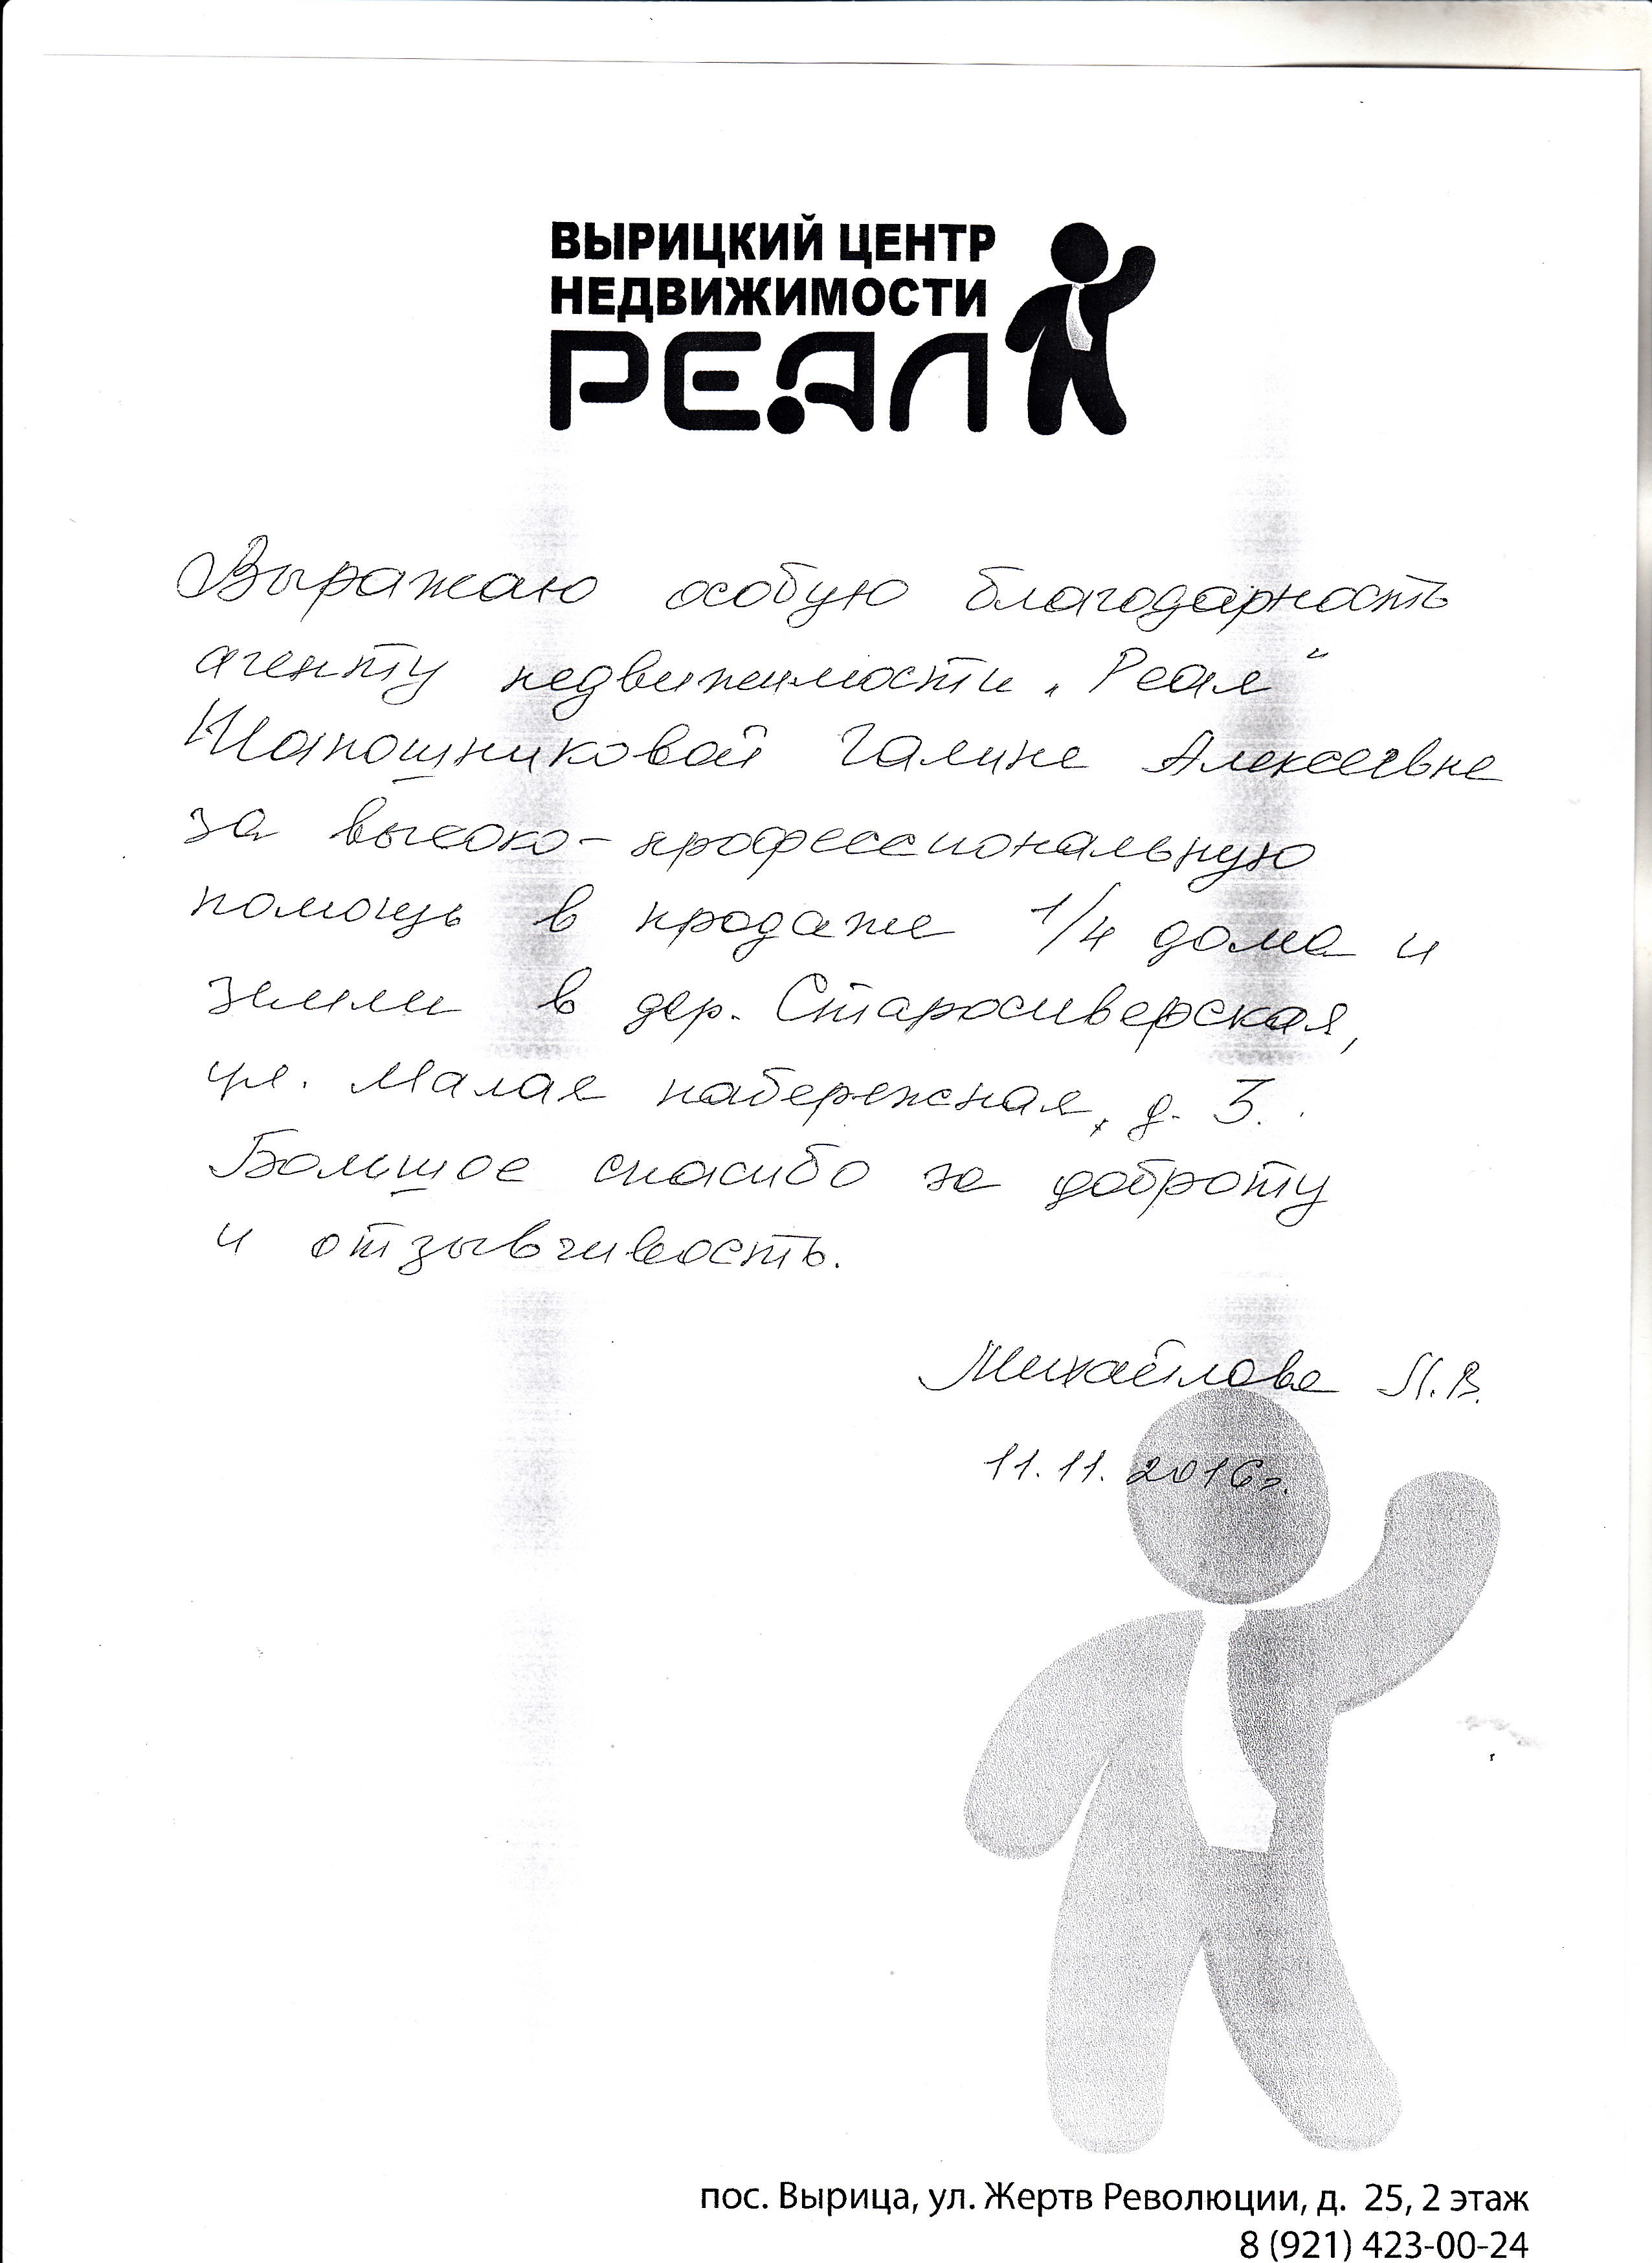 ВЫРИЦКИЙ ЦЕНТР
НЕДВИЖИМОСТИ
РЕАЛ
Выражаю особую благодарность
агенту недвижимости „Реал“
Шапошниковой Галине Алексеевне
за высоко-профессиональную
помощь в продаже 1/4 дома и
земли в дер. Старосиверская,
ул. Малая набережная, д. 3.
Большое спасибо за доброту
и отзывчивость.
Михайлова Л.В.
11.11.2016г.
пос. Вырица, ул. Жертв Революции, д. 25, 2 этаж
8 (921) 423-00-24